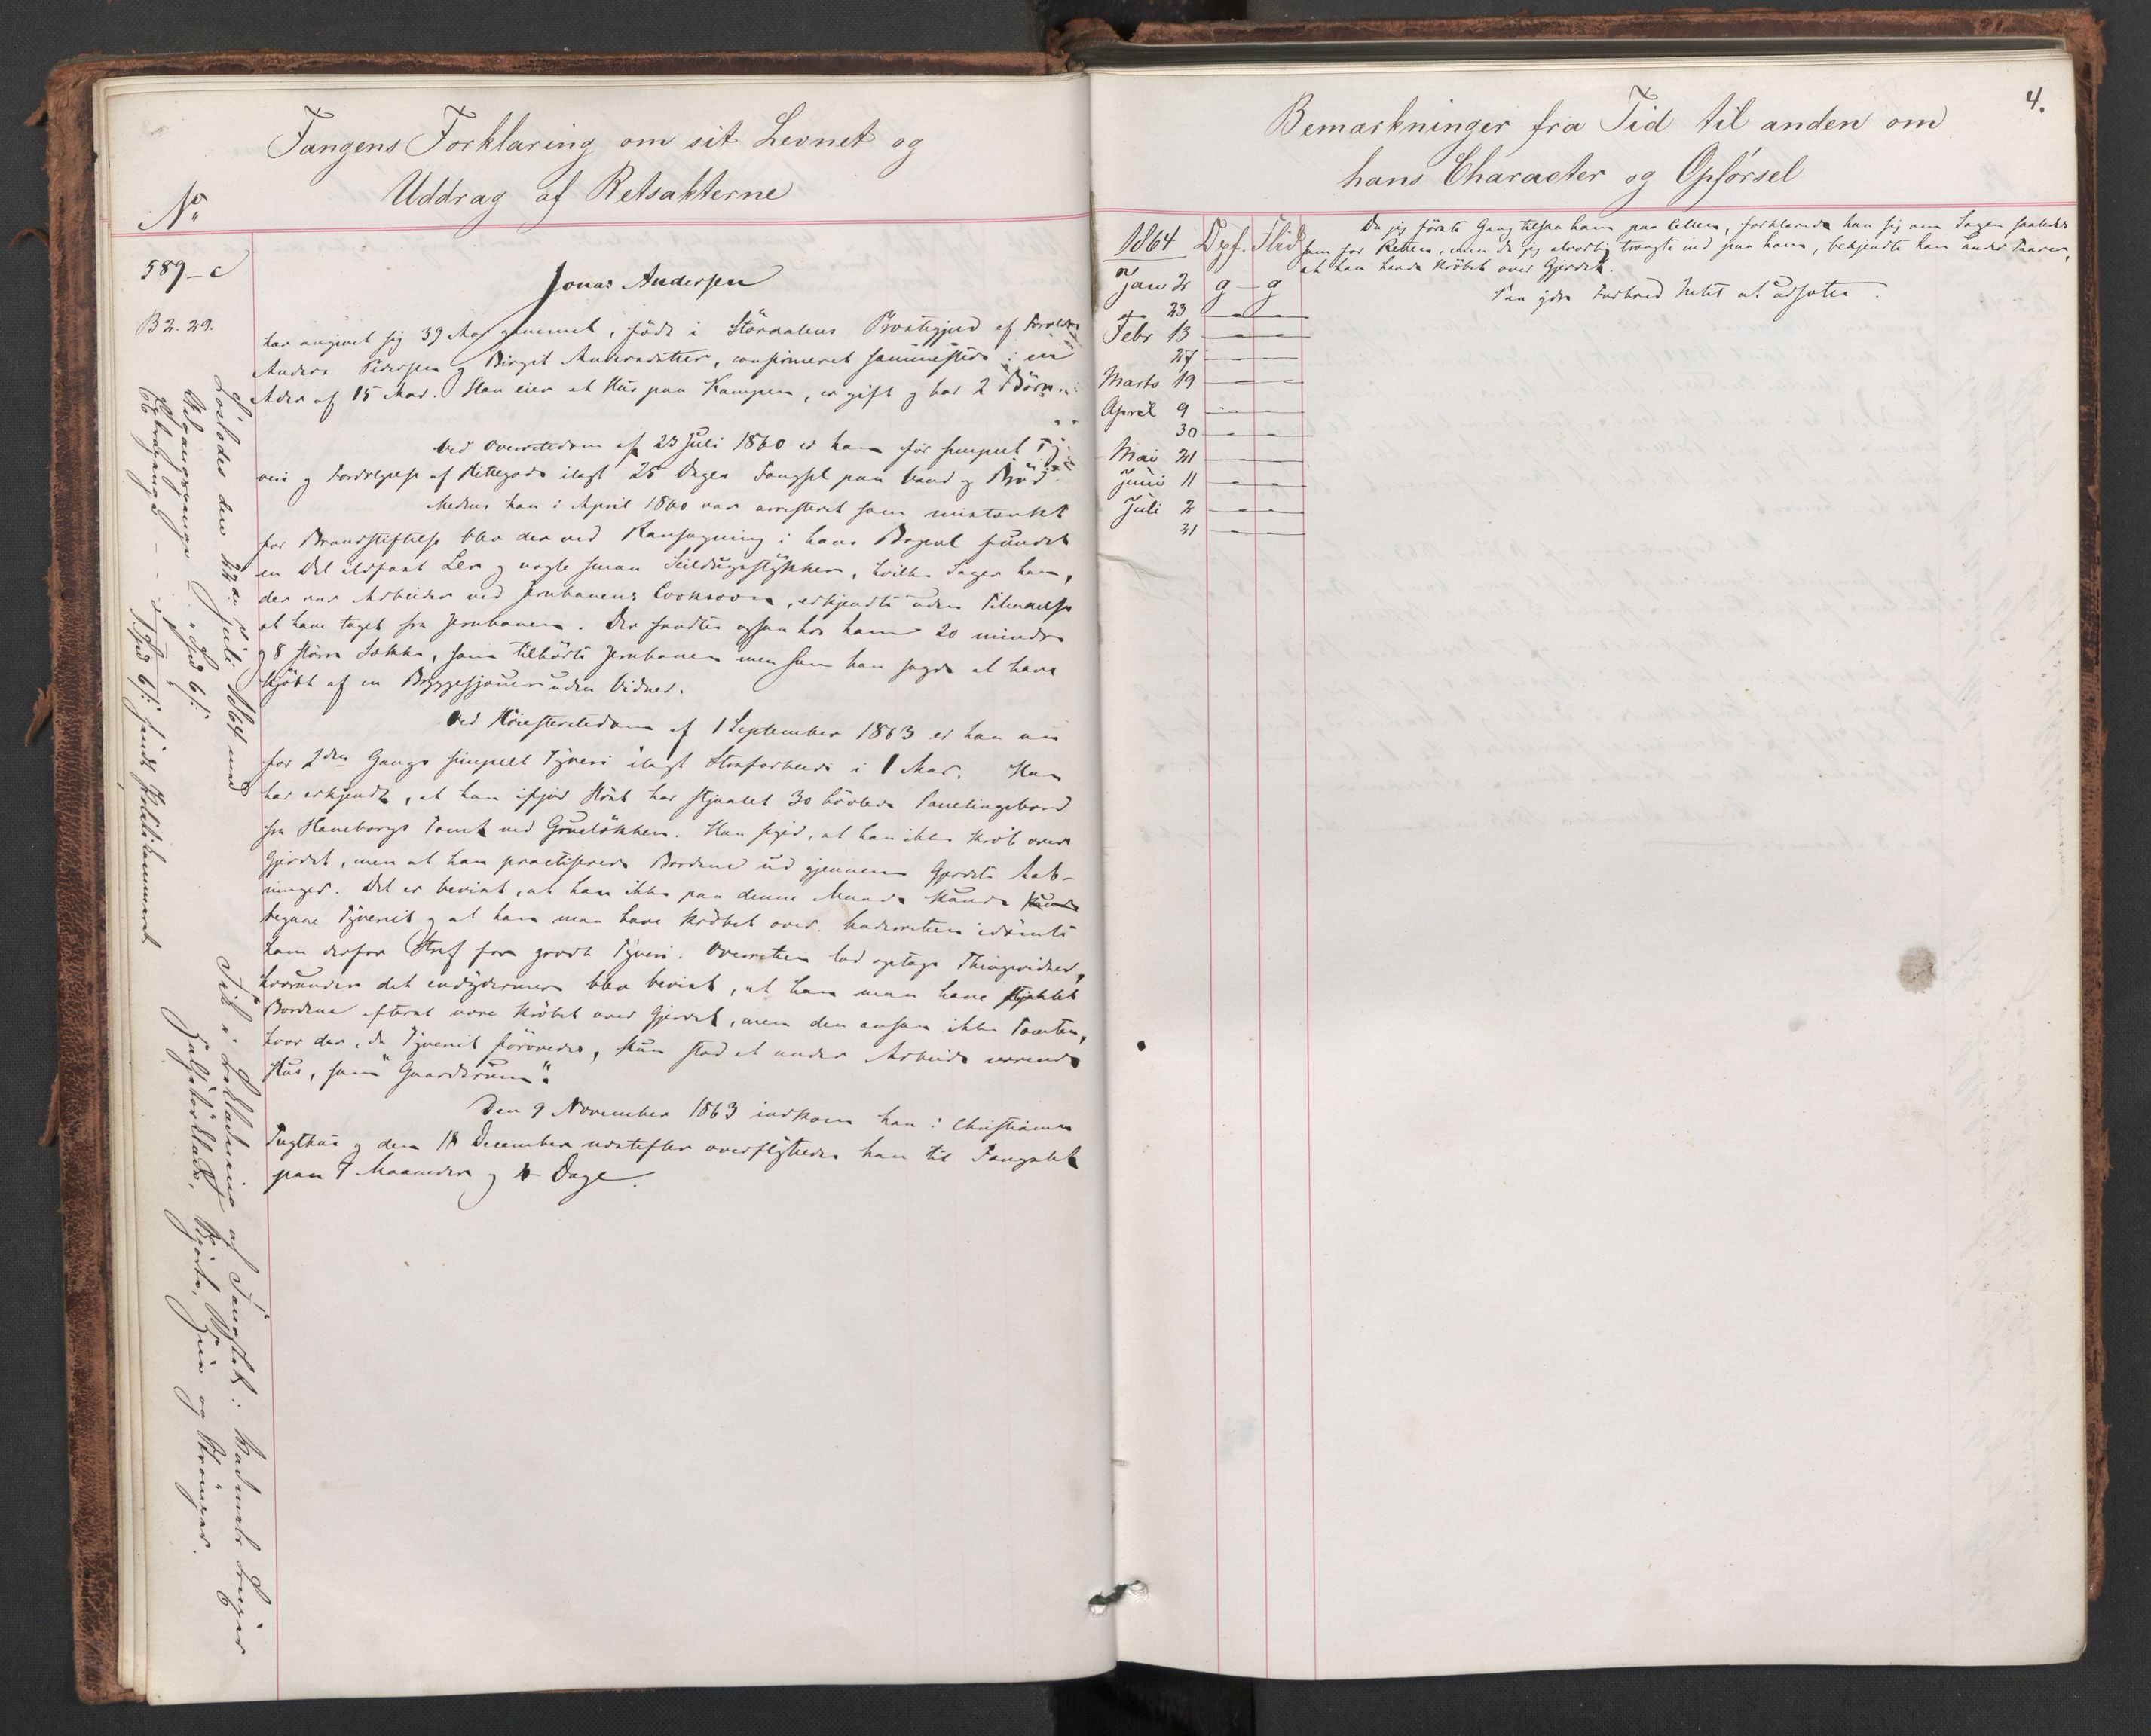 Fangens Forklaring om sit Levnet og
Uddrag af Retsakterne
No
589-c
B 2. 29.
Jonas Andersen
har angivet sig 39 Aar gammel, födt i Stördalens Præstegjeld af Forældre
Anders Pedersen og Birgit Andersdatter, confirmeret sammesteds i en
Alder af 15 Aar. Han eier et Hus paa Kampen, er gift og har 2 Börn.
Ved Overretsdom af 23 Juli 1860 er han för simpelt Ty-
veri og Fordølgelse af Hittegods ilagt 25 Dages Fængsel paa Vand og Bröd.
Medens han i April 1860 var arresteret som mistænkt
for Brandstiftelse blev der ved Ransagning i hans Bopæl fundet
en Del ildfast Ler og nogle smaa Seildugsstykker, hvilke Sager han,
der var Arbeider ved Jernbanens Cooksovn, erkjendte uden Tilladelse
at have taget fra Jernbanen. Der fandtes ogsaa hos ham 20 mindre
og 8 större Sække, som tilhörte Jernbanen men som han sagde at have
kjöbt af en Bryggesjouer uden Vidner.
Ved Höiesteretsdom af 1 September 1863 er han nu
for 2den Gangs simpelt Tyveri ilagt Strafarbeide i 1 Aar. Han
har erkjendt, at han ifjor Höst har stjaalet 30 hövlede Panelingsbord
fra Haneborgs Tomt ved Grüelökken. Han siger, at han ikke kröb over
Gjerdet, men at han practiserede Bordene ud gjennem Gjerdets Aab-
ninger. Det er bevist, at han ikke paa denne Maade kunde
begaae Tyveriet og at han maa have kröbet over. Underretten idömte
ham derfor Straf for grovt Tyveri. Overretten lod optage Thingsvidner,
hvorunder det endydermere blev bevist, at han maa have stjaalet
Bordene efterat være kröbet over Gjerdet, men den ansaa ikke Tomten,
hvor der, da Tyveriet forövedes, kun stod et under Arbeide værende
Hus, som "Gaardsrum".
Den 9 November 1863 indkom han i Christiania
Tugthus og den 18 December næstefter overflyttedes han til Fængslet
paa 7 Maaneder og 4 Dage.
Löslodes den 22de Juli 1864 med
Adgangspenge
Fik i Beklædning af Fængslet: Vadmels
Skjorte, og Strömper.
Bemærkninger fra Tid til anden om
hans Character og Opførsel
4.
1864 Opf. Flid
Jan 2 g g
23 — —
Febr 13 — —
27 — —
Marts 19 — —
April 9 — —
30 — —
Mai 21 — —
Juni 11 — —
Juli 2 — —
21 — —
Da jeg förste Gang tilsaa ham paa Cellen, forklarede han sig om Sagen saaledes
som for Retten, men da jeg alvorlig trængte ind paa ham, bekjendte han under Taarer,
at han havde kröbet over Gjerdet.
Paa hans Forhold Intet at udsætte.